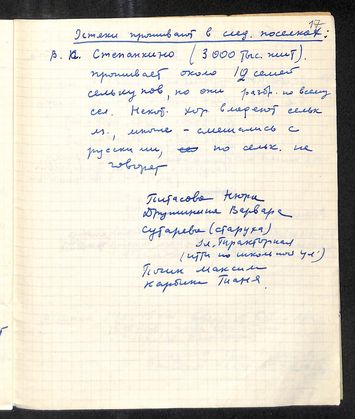 17
Эстеки проживают в след. поселках:
В. К. Степанкино (3000 тыс. жит).
проживает около 12 семей
селькупов, но они разбр. по всему
сел. Некот. хор владеют сельк
яз., многие - смешались с
русскими, по сельк. не
говорят
Питасова Нюра
Дружинина Варвара
Сутарева (старуха)
ул. Тракторная
(идти по школьной ул.)
Пычкин Максим
Карбина Таня